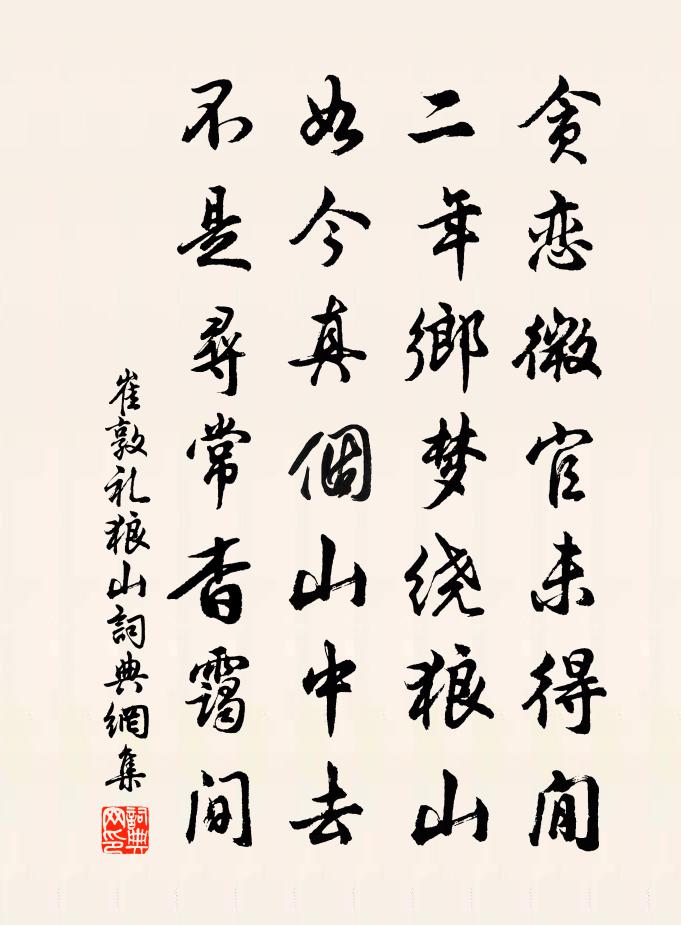 贪恋微官未得闲
二年鄉梦绕狼山
如今真個山中去
不是尋常杳霭间
崔敦礼狼山詞典網集
詞典网印